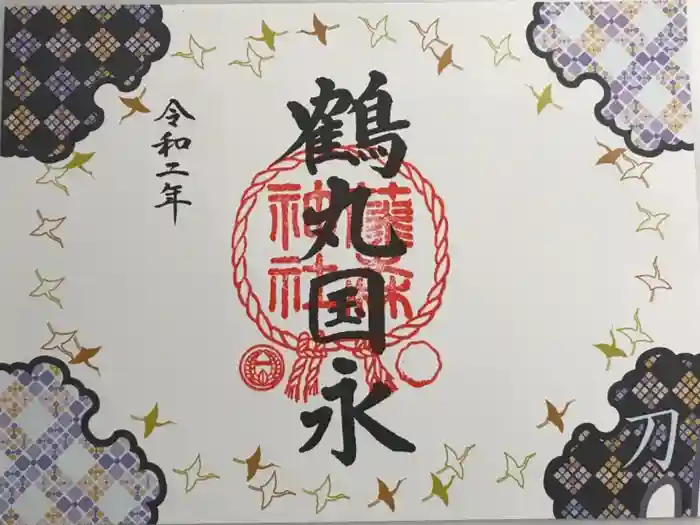 鶴丸国永
令和二年
藤森
神社
刀